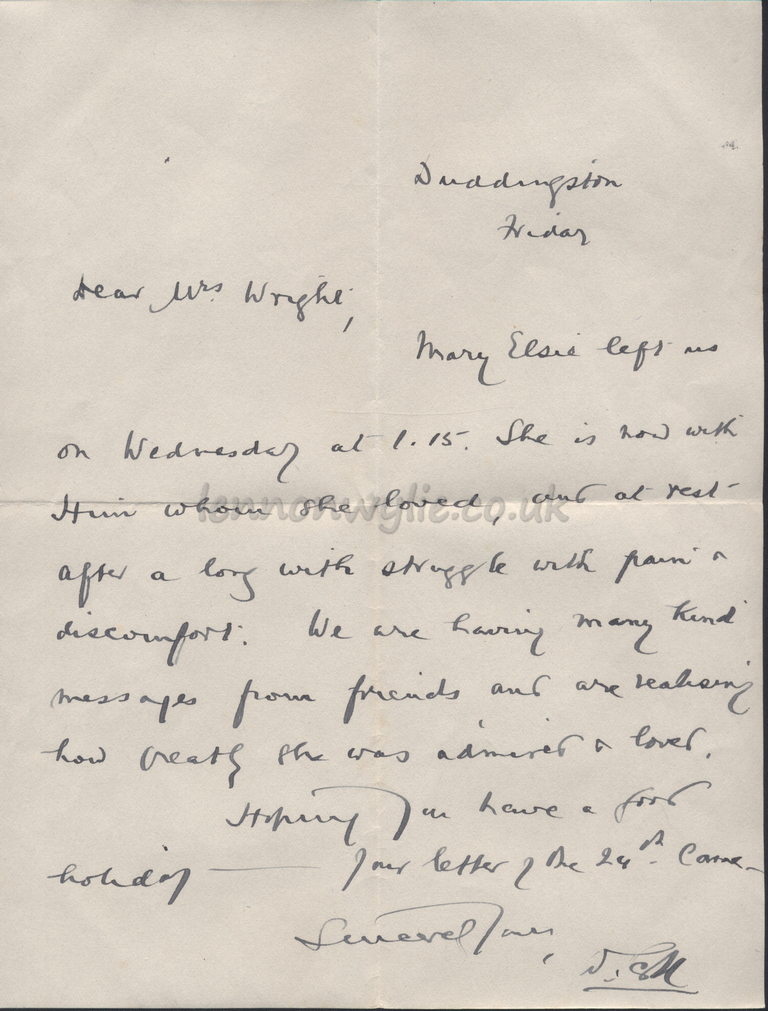 Duddingston
Friday
Dear Mrs Wright,
Mary Elsie left us
on Wednesday at 1.15. She is now with
Him whom she loved, and at rest
lennonwylie.co.uk
after a long with struggle with pain &
discomfort. We are having many kind
messages from friends and are realising
how greatly she was admired & loved.
Hoping you have a good
holiday — your letter of the 24th. Came —
Sincerely Yours,